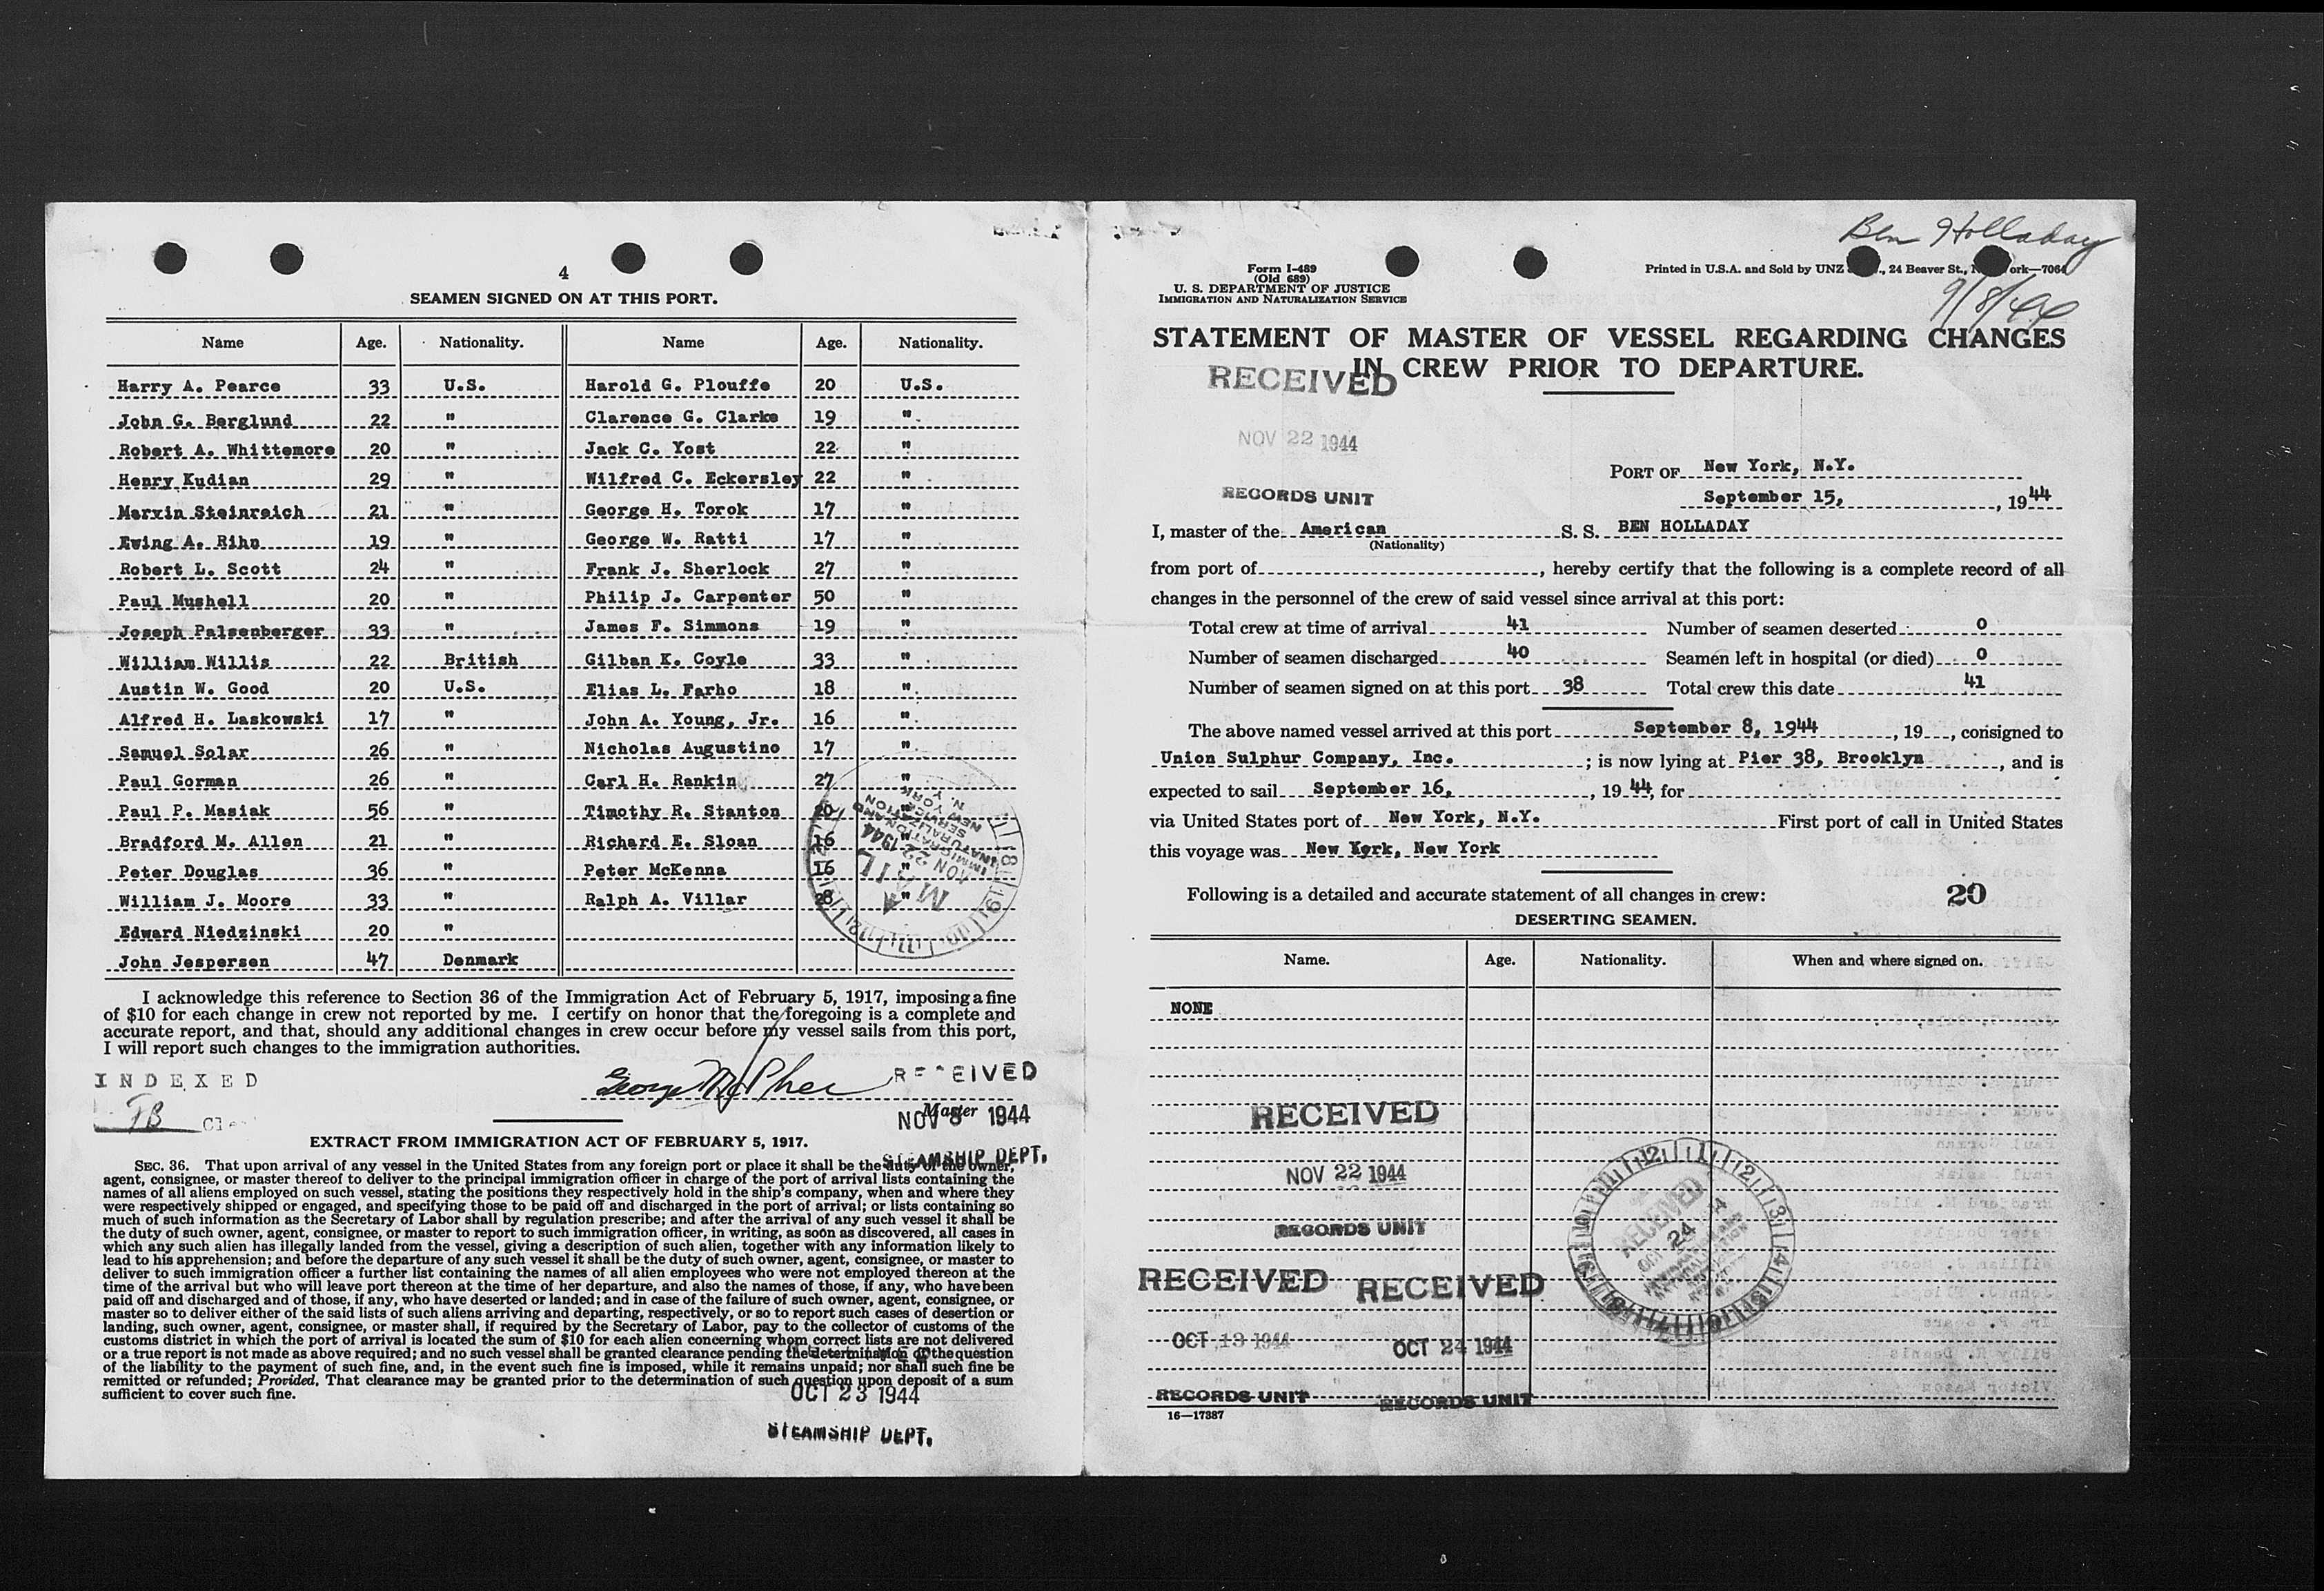 4
SEAMEN SIGNED ON AT THIS PORT.
Name Age. Nationality. Name Age. Nationality.
Harry A. Pearce 33 U.S. Harold G. Plouffe 20 U.S.
John G. Berglund 22 " Clarence G. Clarke 19 "
Robert A. Whittemore 20 " Jack C. Yost 22 "
Henry Kudian 29 " Wilfred C. Eckersley 22 "
Marxin Steinreich 21 " George H. Torok 17 "
Ewing A. Rihn 19 " George W. Ratti 17 "
Robert L. Scott 24 " Frank J. Sherlock 27 "
Paul Mushell 20 " Philip J. Carpenter 50 "
Joseph Palsenberger 33 " James F. Simmons 19 "
William Willis 22 British Gilban K. Coyle 33 "
Austin W. Good 20 U.S. Elias L. Farho 18 "
Alfred H. Laskowski 17 " John A. Young, Jr. 16 "
Samuel Solar 26 " Nicholas Augustino 17 "
Paul Gorman 26 " Carl H. Rankin 27 "
Paul P. Masiak 56 " Timothy R. Stanton 20 "
Bradford M. Allen 21 " Richard E. Sloan 16 "
Peter Douglas 36 " Peter McKenna 16 "
William J. Moore 33 " Ralph A. Villar 28 "
Edward Niedzinski 20 "
John Jespersen 47 Denmark
MAIL
NOV 22 1944
IMMIGRATION AND
NATURALIZATION
SERVICE
NEW YORK
N. Y.
I acknowledge this reference to Section 36 of the Immigration Act of February 5, 1917, imposing a fine
of $10 for each change in crew not reported by me. I certify on honor that the foregoing is a complete and
accurate report, and that, should any additional changes in crew occur before my vessel sails from this port,
I will report such changes to the immigration authorities.
INDEXED
FB
George McPhee
Master
RECEIVED
NOV 8 1944
STEAMSHIP DEPT.
EXTRACT FROM IMMIGRATION ACT OF FEBRUARY 5, 1917.
SEC. 36. That upon arrival of any vessel in the United States from any foreign port or place it shall be the duty of the owner,
agent, consignee, or master thereof to deliver to the principal immigration officer in charge of the port of arrival lists containing the
names of all aliens employed on such vessel, stating the positions they respectively hold in the ship's company, when and where they
were respectively shipped or engaged, and specifying those to be paid off and discharged in the port of arrival; or lists containing so
much of such information as the Secretary of Labor shall by regulation prescribe; and after the arrival of any such vessel it shall be
the duty of such owner, agent, consignee, or master to report to such immigration officer, in writing, as soon as discovered, all cases in
which any such alien has illegally landed from the vessel, giving a description of such alien, together with any information likely to
lead to his apprehension; and before the departure of any such vessel it shall be the duty of such owner, agent, consignee, or master to
deliver to such immigration officer a further list containing the names of all alien employees who were not employed thereon at the
time of the arrival but who will leave port thereon at the time of her departure, and also the names of those, if any, who have been
paid off and discharged and of those, if any, who have deserted or landed; and in case of the failure of such owner, agent, consignee, or
master so to deliver either of the said lists of such aliens arriving and departing, respectively, or so to report such cases of desertion or
landing, such owner, agent, consignee, or master shall, if required by the Secretary of Labor, pay to the collector of customs of the
customs district in which the port of arrival is located the sum of $10 for each alien concerning whom correct lists are not delivered
or a true report is not made as above required; and no such vessel shall be granted clearance pending the determination of the question
of the liability to the payment of such fine, and, in the event such fine is imposed, while it remains unpaid; nor shall such fine be
remitted or refunded; Provided, That clearance may be granted prior to the determination of such question upon deposit of a sum
sufficient to cover such fine.
OCT 23 1944
STEAMSHIP DEPT.
Ben Holladay
9/8/44
Form I-489
(Old 689)
U. S. DEPARTMENT OF JUSTICE
IMMIGRATION AND NATURALIZATION SERVICE
Printed in U.S.A. and Sold by UNZ , 24 Beaver St., ork—706
STATEMENT OF MASTER OF VESSEL REGARDING CHANGES
IN CREW PRIOR TO DEPARTURE.
RECEIVED
NOV 22 1944
RECORDS UNIT
PORT OF New York, N.Y.
September 15, , 1944
I, master of the American S. S. BEN HOLLADAY
(Nationality)
from port of , hereby certify that the following is a complete record of all
changes in the personnel of the crew of said vessel since arrival at this port:
Total crew at time of arrival 41 Number of seamen deserted 0
Number of seamen discharged 40 Seamen left in hospital (or died) 0
Number of seamen signed on at this port 38 Total crew this date 41
The above named vessel arrived at this port September 8, 1944 , 19 , consigned to
Union Sulphur Company, Inc. ; is now lying at Pier 38, Brooklyn , and is
expected to sail September 16, , 19 44, for
via United States port of New York, N.Y. First port of call in United States
this voyage was New York, New York
Following is a detailed and accurate statement of all changes in crew: 20
DESERTING SEAMEN.
Name. Age. Nationality. When and where signed on.
NONE
RECEIVED
NOV 22 1944
RECORDS UNIT
RECEIVED
24
RECEIVED RECEIVED
OCT 13 1944 OCT 24 1944
RECORDS UNIT RECORDS UNIT
16—17387